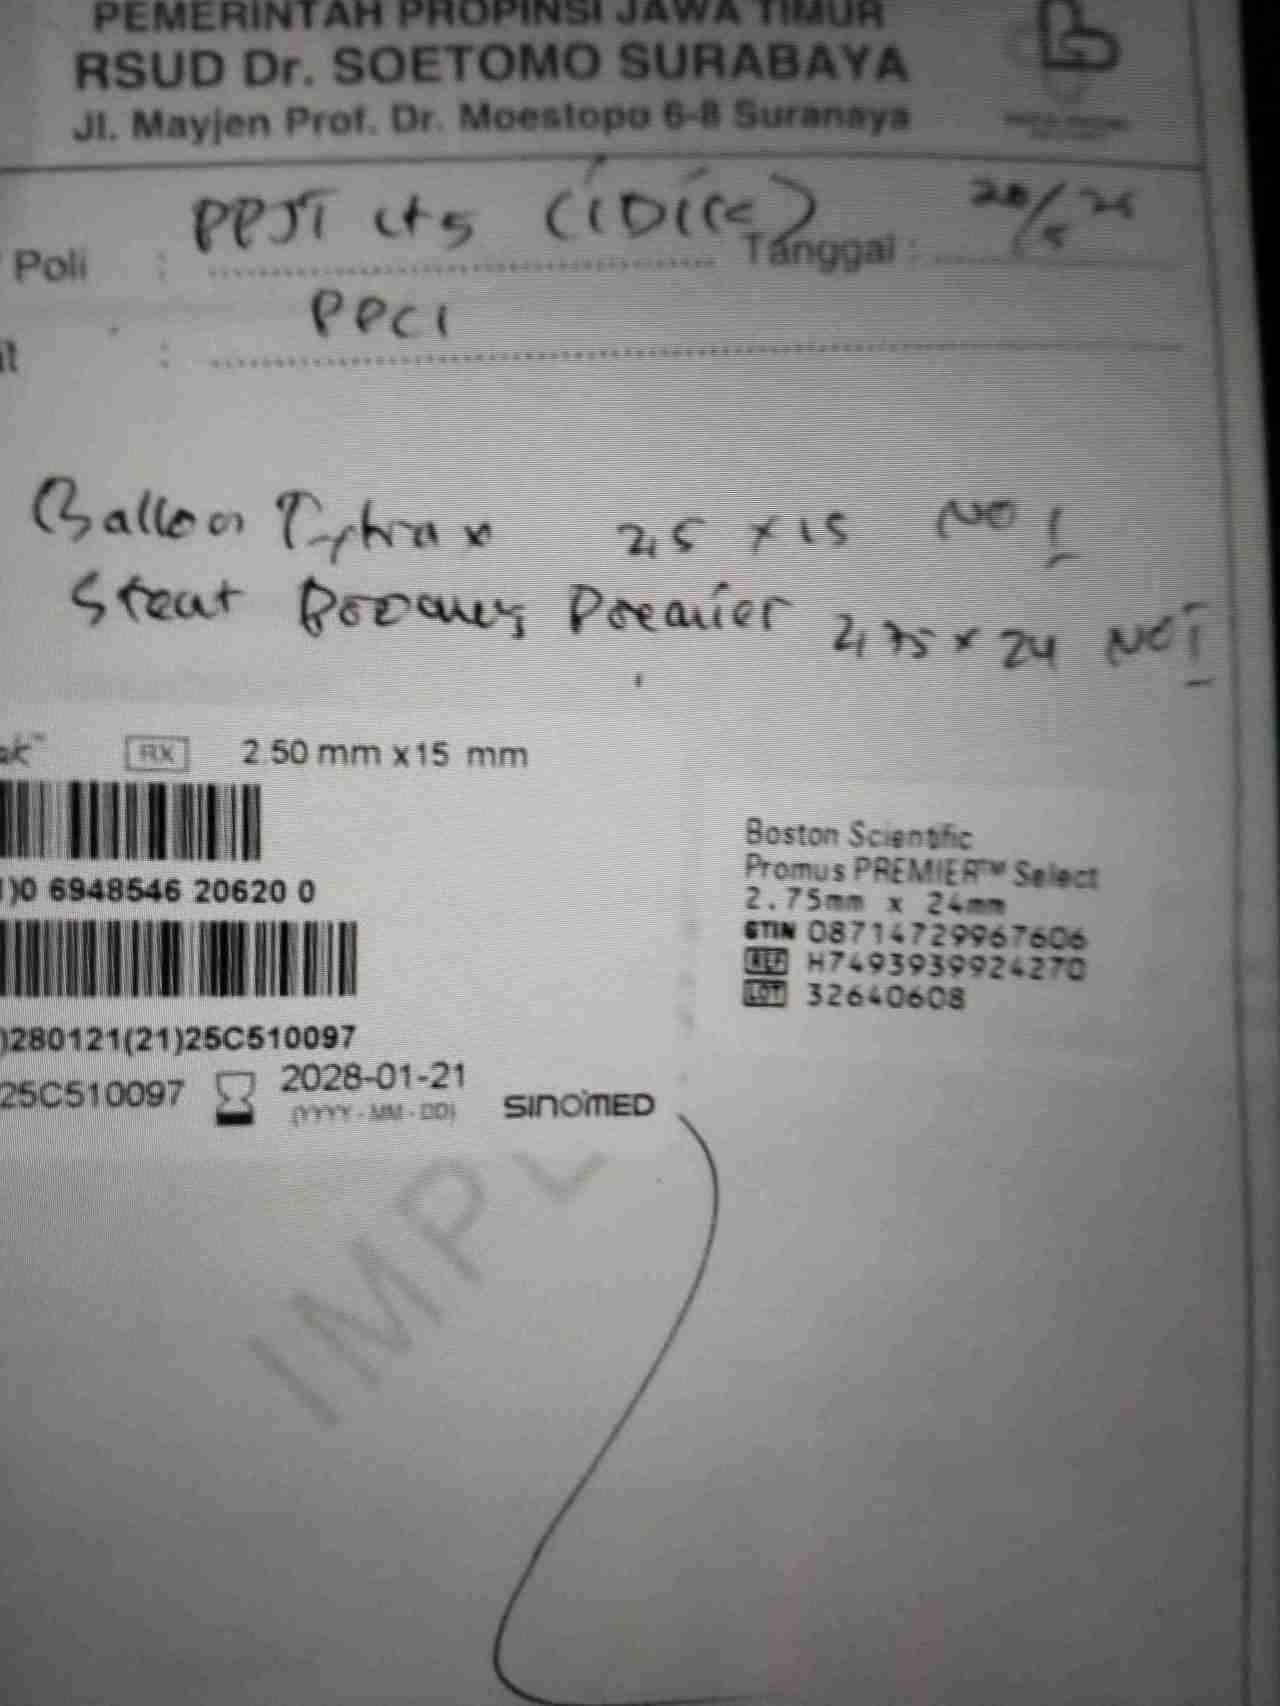 PEMERINTAH PROPINSI JAWA TIMUR
RSUD Dr. SOETOMO SURABAYA
Jl. Mayjen Prof. Dr. Moestopo 6-8 Suranaya
PPJT Lt 5
Poli : Tanggal :
PPCI
:
Balloon 2,5 x 15 NO I
Stent Premier 2,75 x 24 NO I
RX 2.50 mm x 15 mm
)0 6948546 20620 0
)280121(21)25C510097
25C510097 2028-01-21
(YYYY - MM - DD)
SINOMED
Boston Scientific
Promus PREMIER™ Select
2.75mm x 24mm
GTIN 08714729967606
REF H7493939924270
LOT 32640608
IMPL